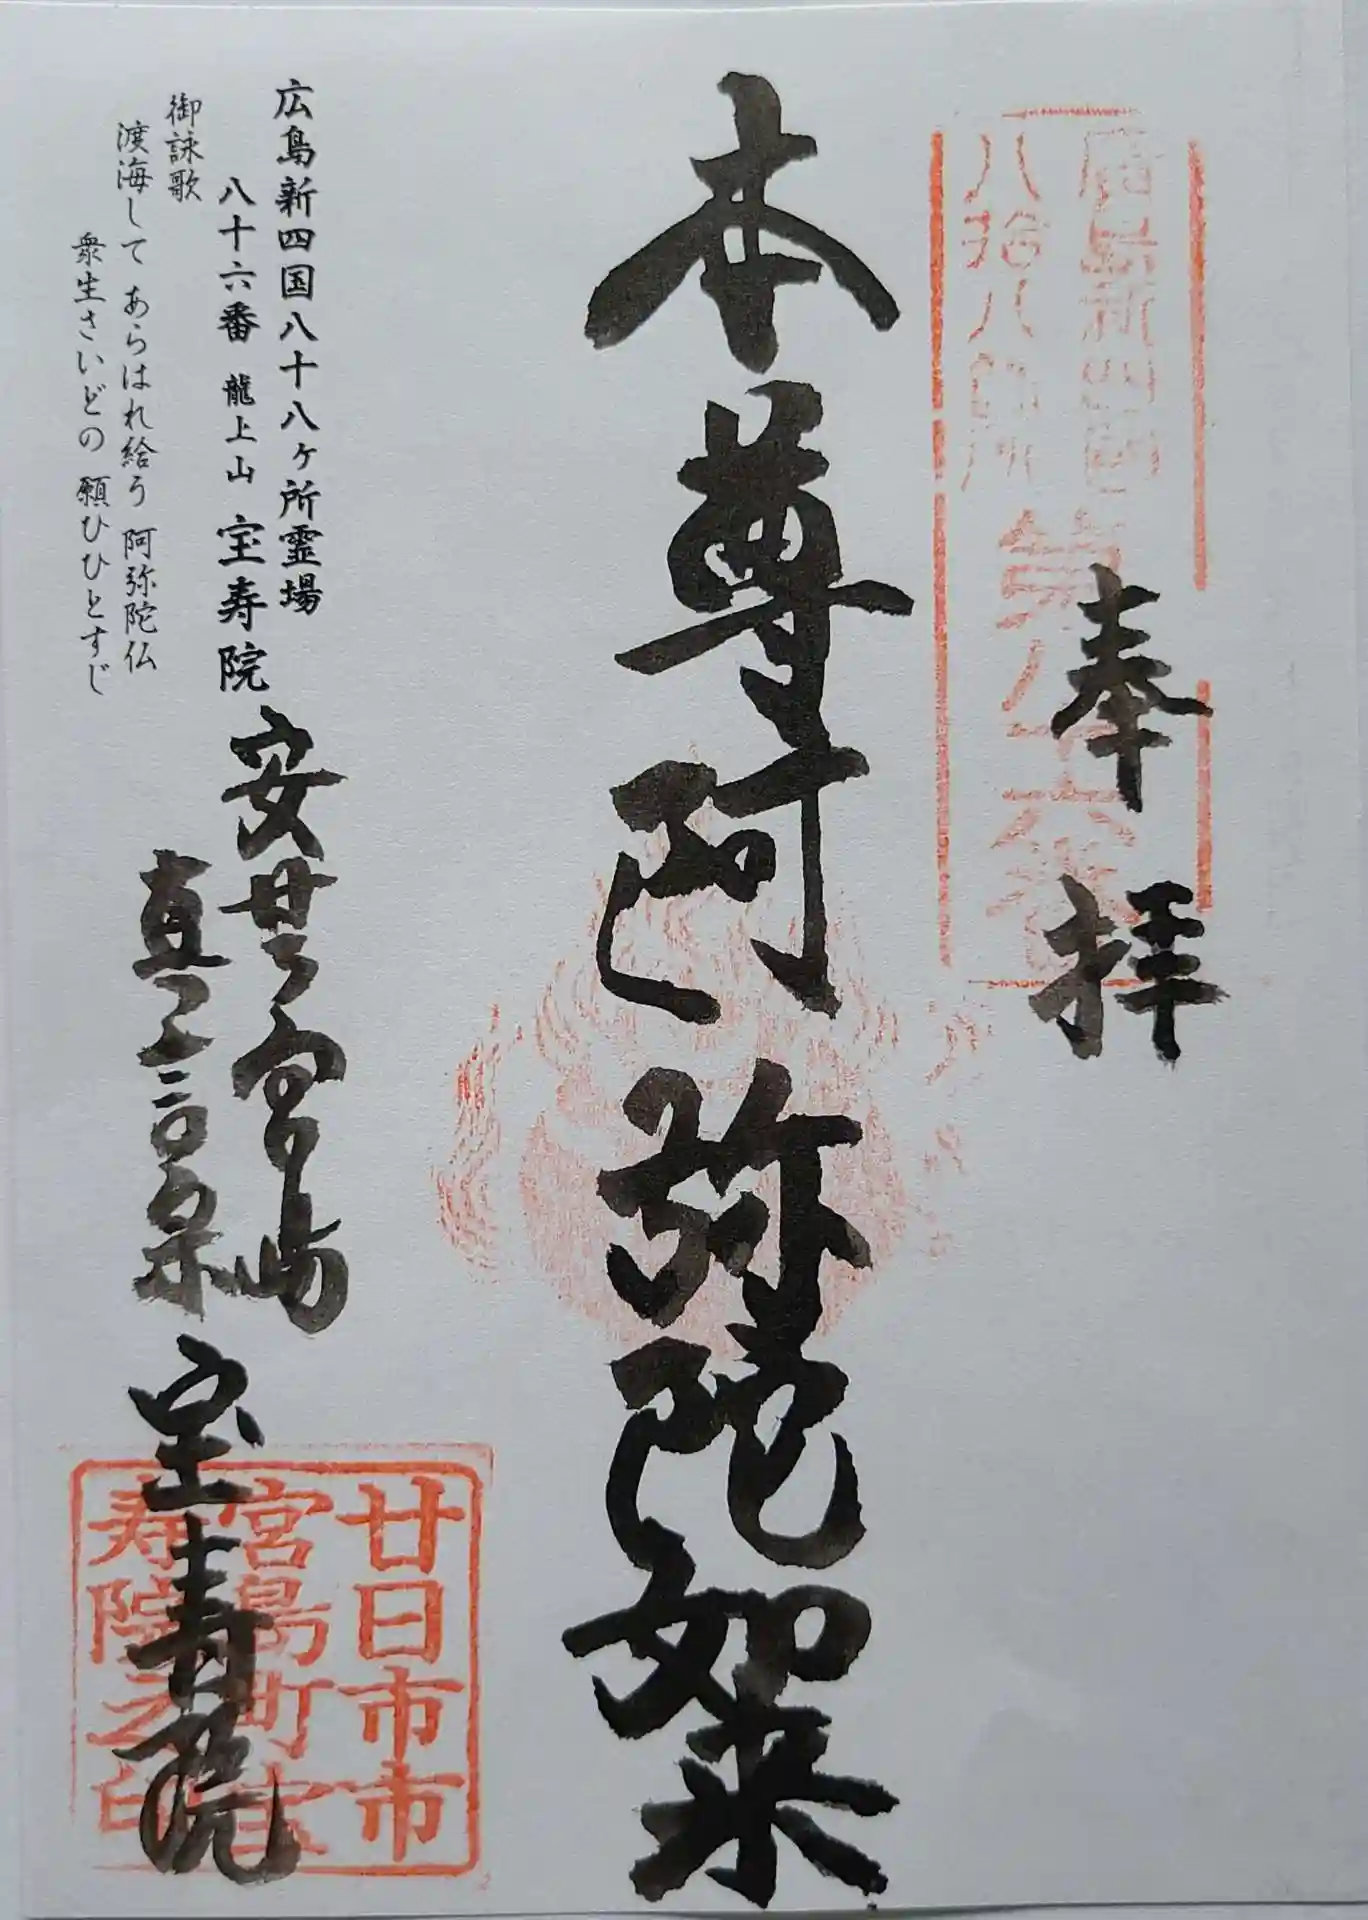 奉拝
広島新四国
八拾八箇所
第八十六番
本尊阿弥陀如来
広島新四国八十八ヶ所霊場
八十六番 龍上山 宝寿院
御詠歌
渡海して あらはれ給う 阿弥陀仏
衆生さいどの 願ひひとすじ
安芸宮嶋
真言宗 宝寿院
廿日市市
宮島町宝
寿院之印